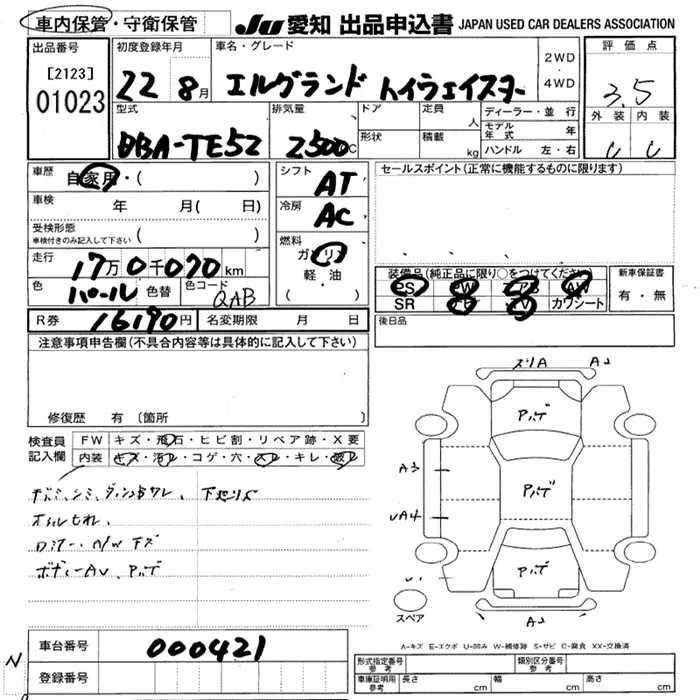 車内保管・守衛保管
JU 愛知 出品申込書 JAPAN USED CAR DEALERS ASSOCIATION
出品番号
[2123]
01023
初度登録年月
22 8月
車名・グレード
エルグランド
2WD
4WD
評価点
3.5
外装 内装
C C
型式
DBA-TE52
排気量
2500
ドア
定員
人
形状
積載
kg
ディーラー・並行
モデル年式 年
ハンドル 左・右
車歴
自家用・( )
車検
年 月( 日)
受検形態
車検付きのみ記入して下さい ( )
走行
17万0千070km
色
パール
色替
色コード
QAB
シフト
AT
冷房
AC
燃料
ガソリン
軽・油
( )
セールスポイント(正常に機能するものに限ります)
装備品(純正品に限り○をつけてください)
PS PW エアB AW
SR ナビ TV カワシート
新車保証書
有・無
後日品
R券 16190円
名変期限 月 日
注意事項申告欄(不具合内容等は具体的に記入して下さい)
修復歴 有 [箇所
検査員
記入欄
FW キズ・飛石・ヒビ割・リペア跡・X要
内装 キズ・汚レ・コゲ・穴・スレ・キレ・破レ
オイルもれ
ボディーAU、アバタ
スリA A2
アバタ
アバタ
アバタ
A3
UA4
U1
A2
スペア
A-キズ E-エクボ U-凹み W-補修跡 S-サビ C-腐食 XX-交換済
車台番号
000421
登録番号
N
形式指定番号
参考
類別区分番号
参考
車庫証明用
参考
長さ cm
幅 cm
高さ cm